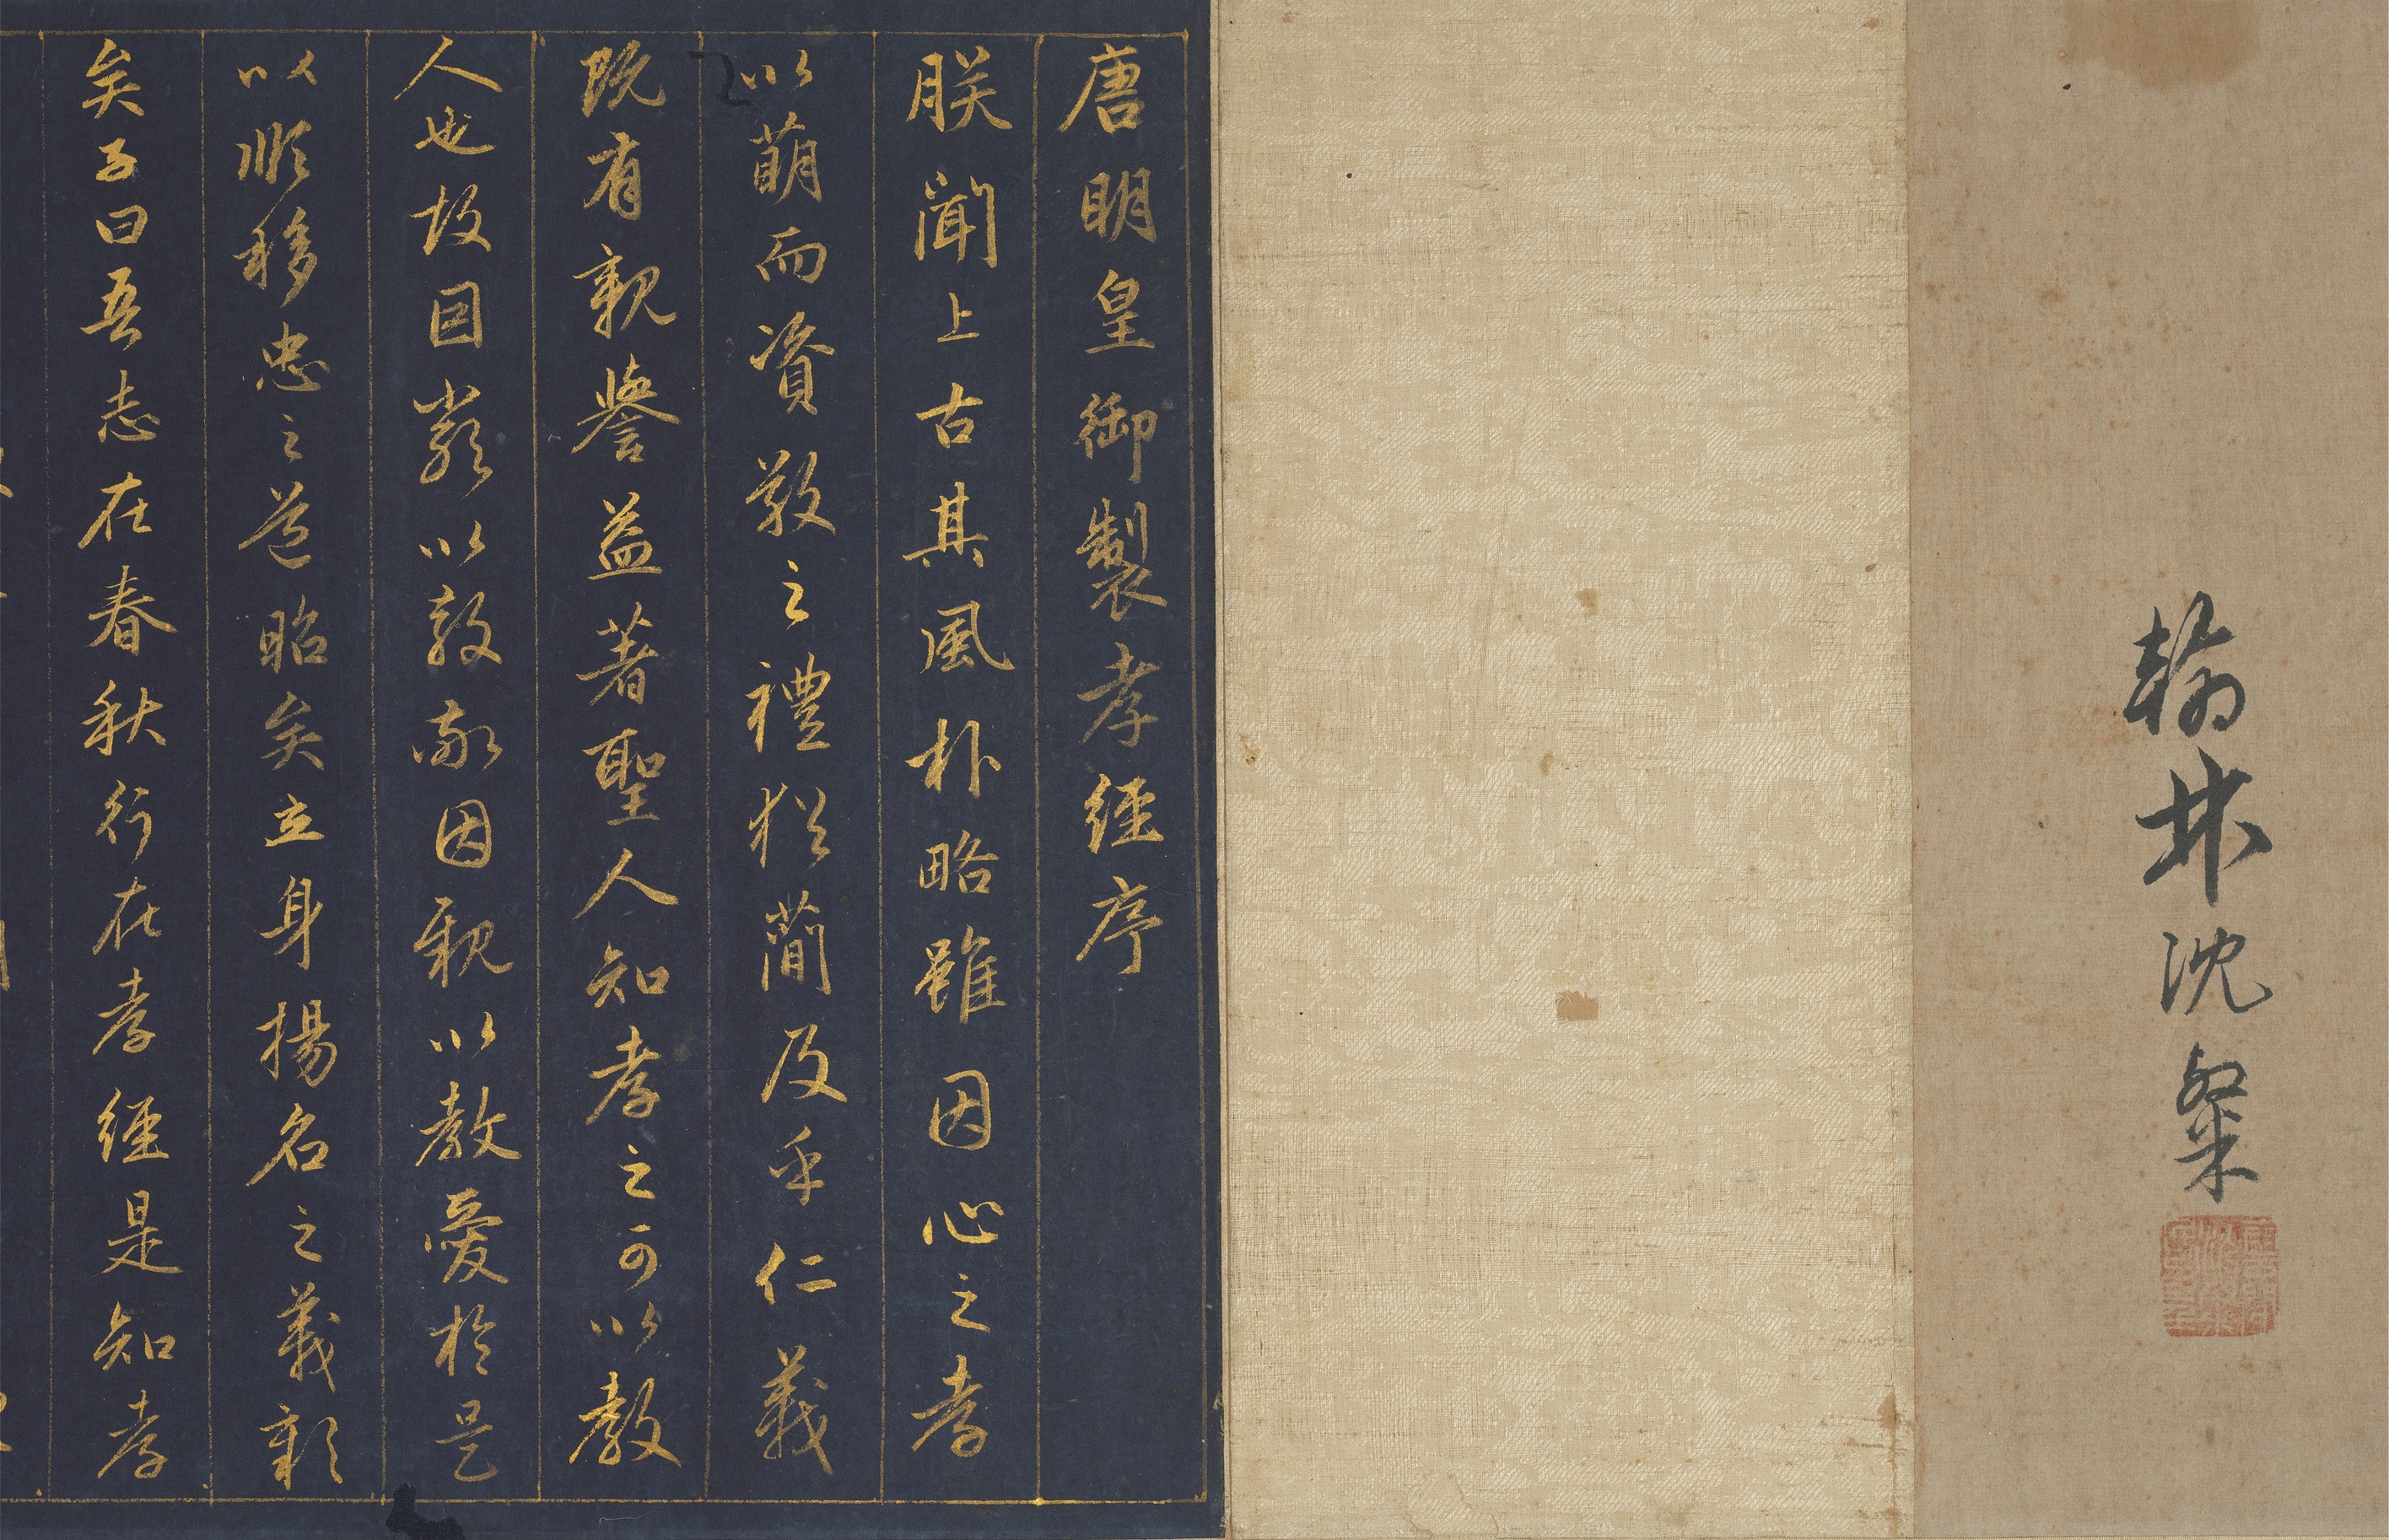 翰林沈粲
唐明皇御製孝經序
朕聞上古其風朴略雖因心之孝
以萌而資敬之禮猶簡及乎仁義
既有親譽益著聖人知孝之可以教
人也故因嚴以教敬因親以教愛於是
以順移忠之道昭矣立身揚名之義彰
矣子曰吾志在春秋行在孝經是知孝